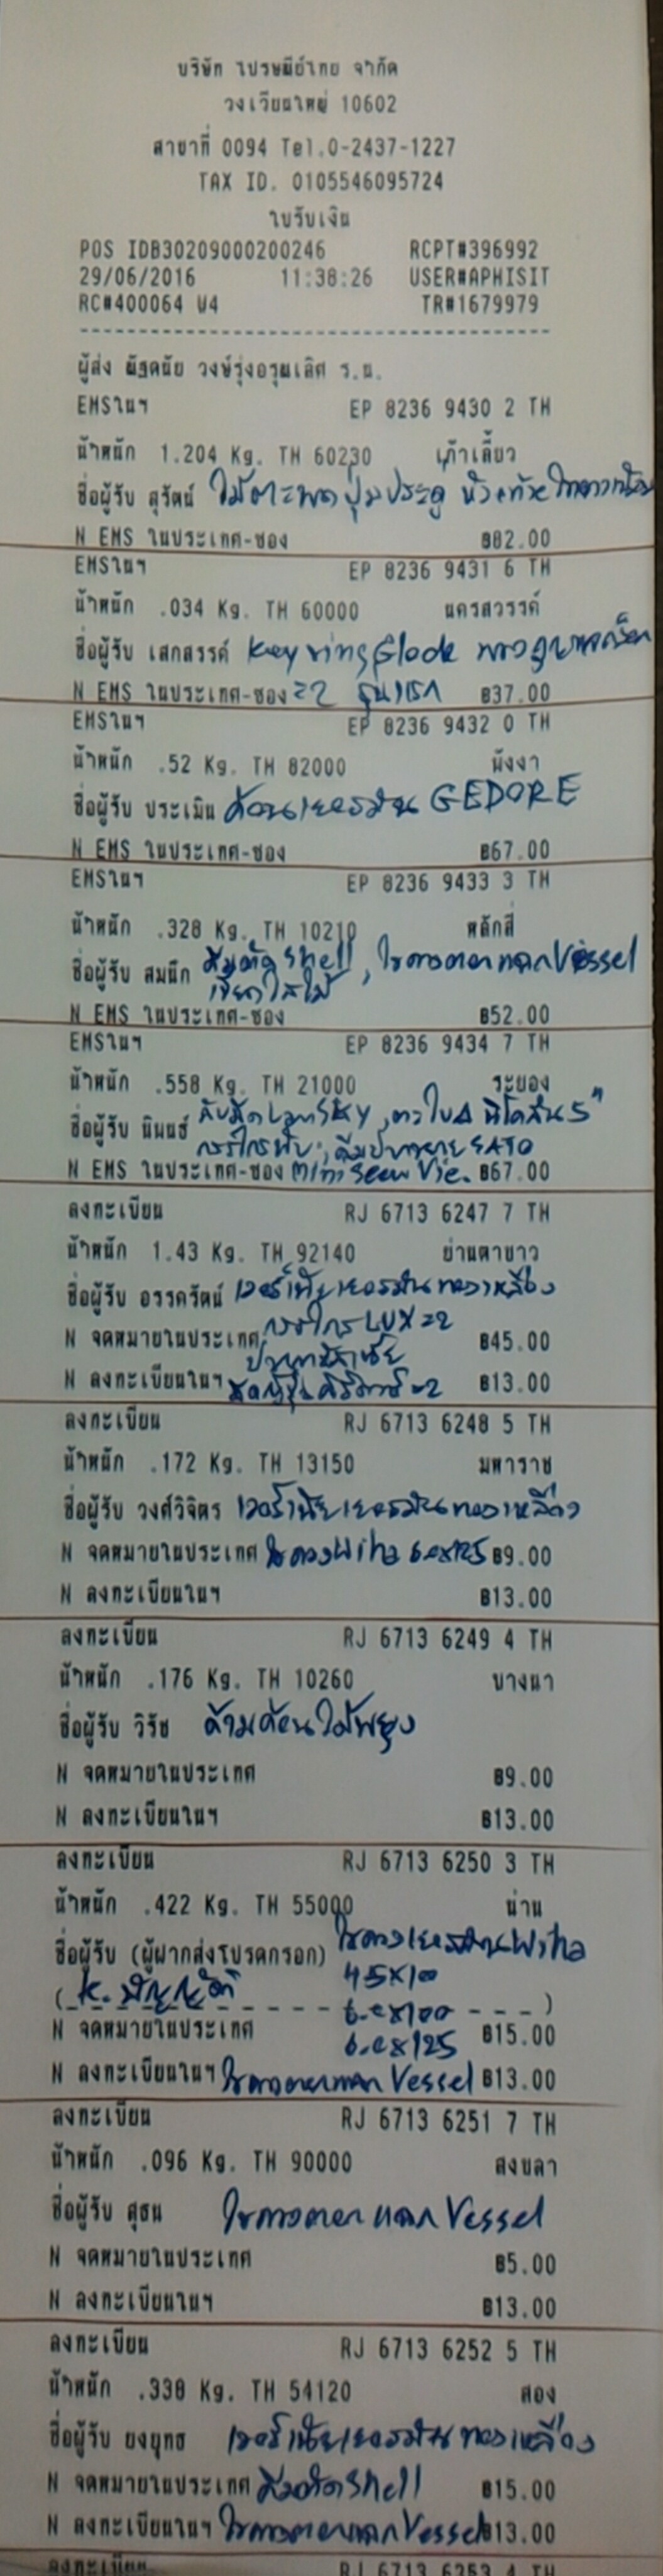 บริษัท ไปรษณีย์ไทย จำกัด
วงเวียนใหญ่ 10602
สาขาที่ 0094 Tel.0-2437-1227
TAX ID. 0105546095724
ใบรับเงิน
POS IDB30209000200246 RCPT#396992
29/06/2016 11:38:26 USER#APHISIT
RC#400064 W4 TR#1679979
ผู้ส่ง ณัฐดนัย วงษ์รุ่งอรุณเลิศ ร.น.
EMSในฯ EP 8236 9430 2 TH
น้ำหนัก 1.204 Kg. TH 60230 เก้าเลี้ยว
ชื่อผู้รับ สุรัตน์ ไม้ตะพด ปุ่มประดู่
N EMS ในประเทศ-ซอง ฿82.00
EMSในฯ EP 8236 9431 6 TH
น้ำหนัก .034 Kg. TH 60000 นครสวรรค์
ชื่อผู้รับ เสกสรรค์ Key ring Glock
N EMS ในประเทศ-ซอง =2 รุ่นแรก ฿37.00
EMSในฯ EP 8236 9432 0 TH
น้ำหนัก .52 Kg. TH 82000 พังงา
ชื่อผู้รับ ประเมิน ค้อนเยอรมัน GEDORE
N EMS ในประเทศ-ซอง ฿67.00
EMSในฯ EP 8236 9433 3 TH
น้ำหนัก .328 Kg. TH 10210 หลักสี่
ชื่อผู้รับ สมนึก คีมตัด Shell, ไขควงตอกแฉก Vessel
N EMS ในประเทศ-ซอง ฿52.00
EMSในฯ EP 8236 9434 7 TH
น้ำหนัก .558 Kg. TH 21000 ระยอง
ชื่อผู้รับ นิแนธ์ ตะไบ 5"
SATO
N EMS ในประเทศ-ซอง ฿67.00
ลงทะเบียน RJ 6713 6247 7 TH
น้ำหนัก 1.43 Kg. TH 92140 ย่านตาขาว
ชื่อผู้รับ อรรครัตน์ เวอร์เนียเยอรมันทองเหลือง
N จดหมายในประเทศ กรรไกร LUX =2 ฿45.00
N ลงทะเบียนในฯ ฿13.00
ลงทะเบียน RJ 6713 6248 5 TH
น้ำหนัก .172 Kg. TH 13150 มหาราช
ชื่อผู้รับ วงศ์วิจิตร เวอร์เนียเยอรมันทองเหลือง
N จดหมายในประเทศ ไขควง Wiha 6.0x125 ฿9.00
N ลงทะเบียนในฯ ฿13.00
ลงทะเบียน RJ 6713 6249 4 TH
น้ำหนัก .176 Kg. TH 10260 บางนา
ชื่อผู้รับ วิรัช ด้ามค้อนไม้พยุง
N จดหมายในประเทศ ฿9.00
N ลงทะเบียนในฯ ฿13.00
ลงทะเบียน RJ 6713 6250 3 TH
น้ำหนัก .422 Kg. TH 55000 น่าน
ชื่อผู้รับ (ผู้ฝากส่งโปรดกรอก) ไขควงเยอรมัน Wiha
(K. บัญญัติ) 4.5x100
6.0x100
N จดหมายในประเทศ 6.0x125 ฿15.00
N ลงทะเบียนในฯ ไขควงตอกแฉก Vessel ฿13.00
ลงทะเบียน RJ 6713 6251 7 TH
น้ำหนัก .096 Kg. TH 90000 สงขลา
ชื่อผู้รับ สุธน ไขควงตอกแฉก Vessel
N จดหมายในประเทศ ฿5.00
N ลงทะเบียนในฯ ฿13.00
ลงทะเบียน RJ 6713 6252 5 TH
น้ำหนัก .338 Kg. TH 54120 สอง
ชื่อผู้รับ ยงยุทธ เวอร์เนียเยอรมันทองเหลือง
N จดหมายในประเทศ คีมตัด Shell ฿15.00
N ลงทะเบียนในฯ ไขควงตอกแฉก Vessel ฿13.00
ลงทะเบียน RJ 6713 6253 4 TH